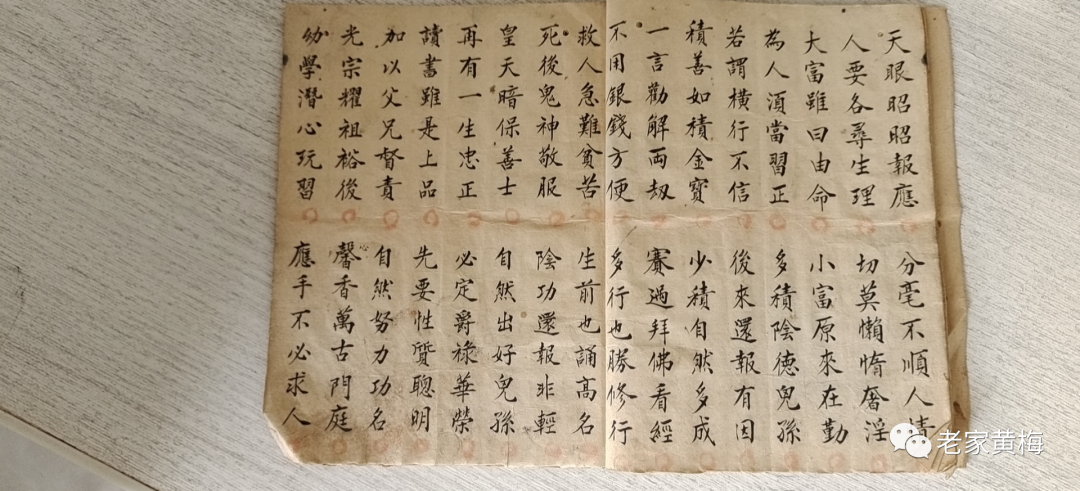 天眼昭昭報應 分毫不順人情
人要各尋生理 切莫懶惰奢淫
大富雖曰由命 小富原來在勤
為人湏當習正 多積陰德兒孫
若謂橫行不信 後來還報有因
積善如積金寶 少積自然多成
一言勸解両刼 賽過拜佛看經
不用銀錢方便 多行也勝修行
救人急難貧苦 生前也誦高名
死後鬼神敬服 陰功還報非輕
皇天暗保善士 自然出好兒孫
再有一生忠正 必定爵祿華榮
讀書雖是上品 先要性質聰明
加以父兄督責 自然努力功名
光宗耀祖裕後 馨香萬古門庭
幼學潛心玩習 應手不必求人
老家黄梅